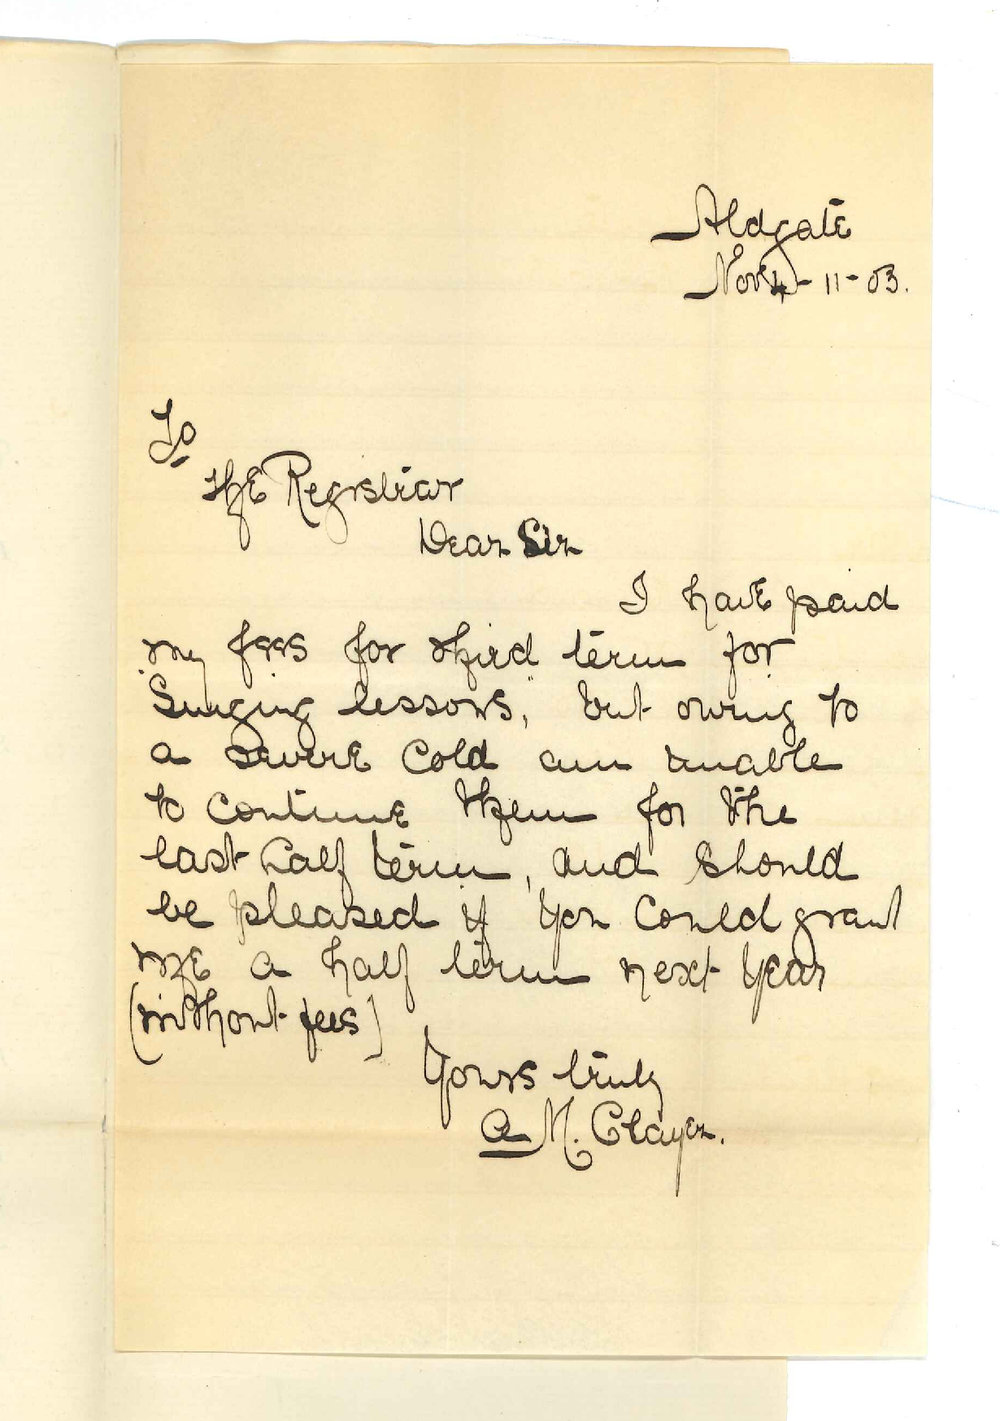 Aldgate
Nov 4 - 11 - 03.
To
The Registrar
Dear Sir
I have paid
my fees for third term for
"Singing lessons," but owing to
a severe cold am unable
to continue them for the
last half term, and should
be pleased if you could grant
me a half term next year
(without fees)
Yours truly
A M. Clayer.